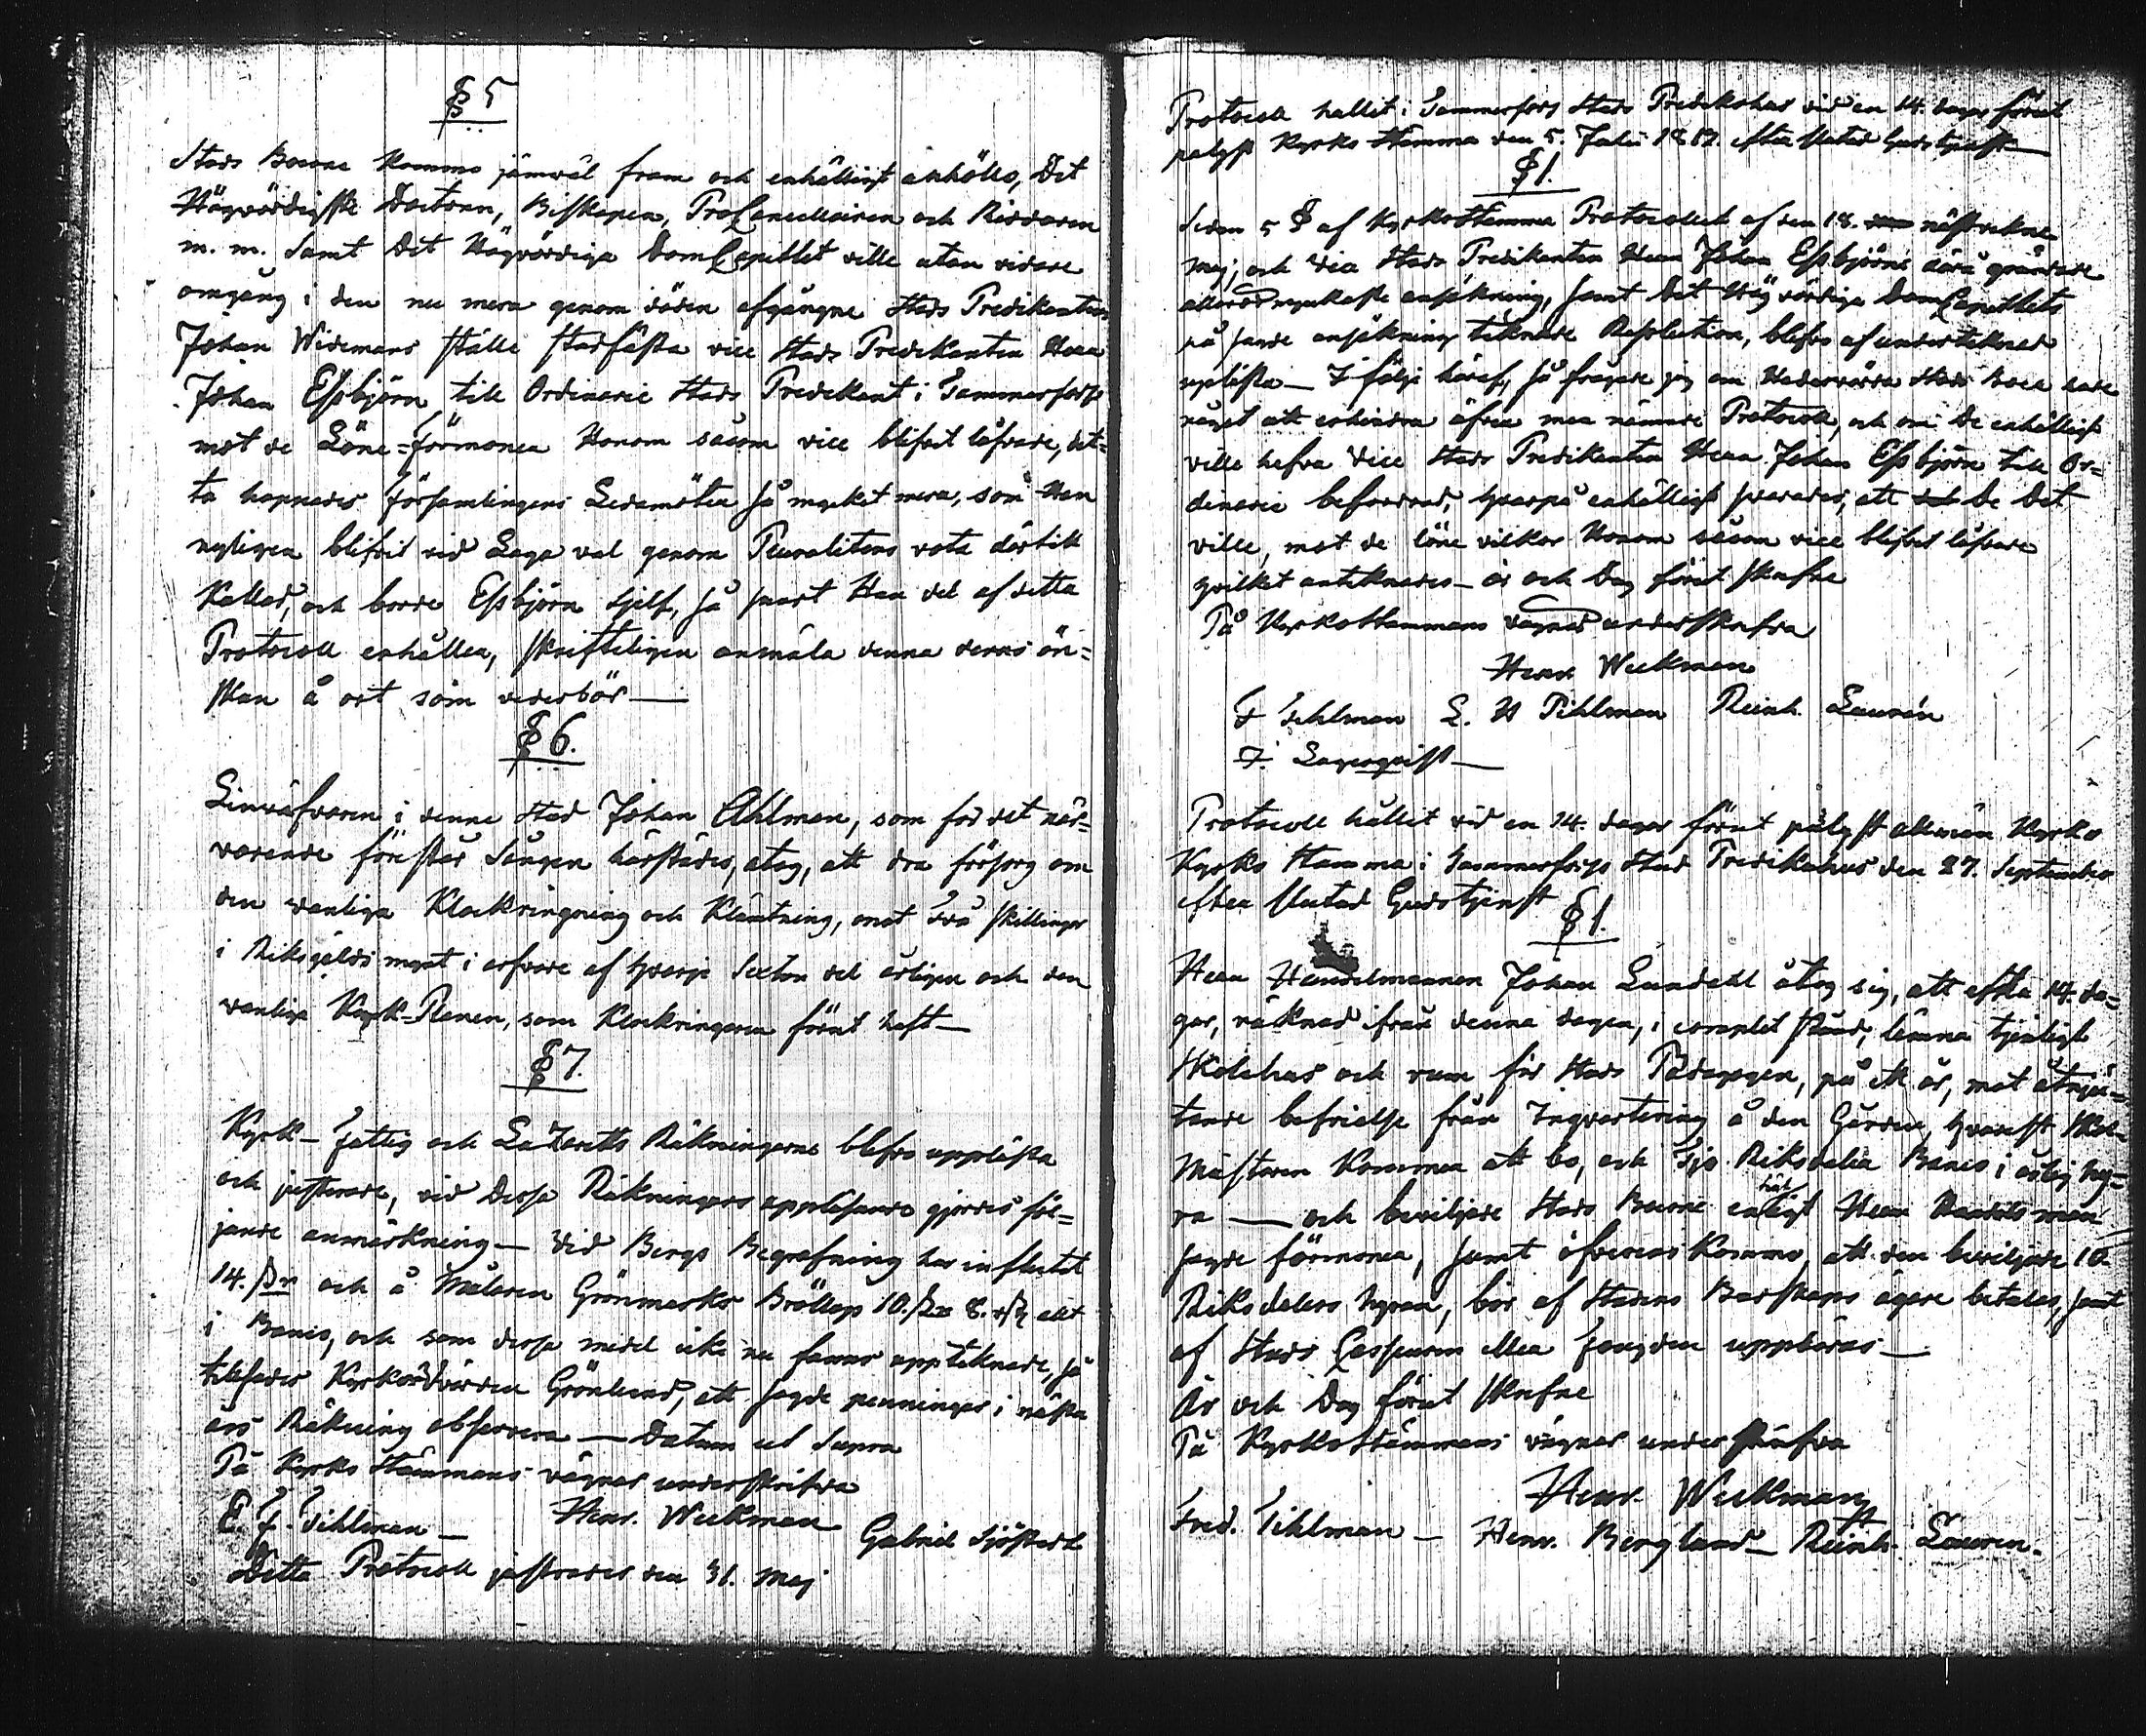 § 5
Stads Boerne komma jämväl fram och enhälligt anhölle, Det
Högvördigste Doctorn, Biskopen, ProCancellairen och Riddaren
m. m. samt Det Högvördiga DomCapitlet ville utan vidare
omgång i den nu mera genom döden afgångne Stads Predikanten
Johan Widemans ställe stadfästa vice Stads Predikanten Herr
Johan Essbjörn till Ordinarie Stads Predikant i Tammerfors
mot de Löne-förmoner Honom såsom vice blifvit låfvade, det=
ta hoppades Församlingens Ledamöter så mycket mera, som Han
nyligen blifvit vid Laga val genom Pluralitens vota dertill
Kallad, och borde Essbjörn sjelf, så snart Han del af detta
Protocoll erhåller, skrifteligen anmäla denna deras ön=
skan å ort som vederbör —
§ 6.
Linväfvaren i denne Stad Johan Ahlman, som för det när=
varande förestår Sången härstädes, åtog, att dra försorg om
den vanliga Klockringning och Klämtning, mot två skillingar
i Riksgälds mynt i arfvode af hvarje Sexton del årligen och den
vanliga Kyrk-Planen, som Klockringaren förut haft —
§ 7.
Kyrk- Fattig och Lazaretts Räkningarne blefvo upplästa
och justerade, vid dessa Räkningars uppläsande gjordes föl=
jande anmärkning — Vid Bergs Begrafning har influtit
14. och å Målaren Grönmarks Bröllop 10. 8. allt
i Banco, och som dessa medel icke nu fanns uppteknade, så
tillsades Kyrkovärden Grönlund, att sagde penningar i nästa
års Räkning observera — Datum ut Supra
På Kyrko Stämmans vägnar underskrifva
Henr. Weckman
E. F. Tihlman — Gabriel Sjöstedt
Detta Protocoll justerades den 31. Maj
Protocoll hållit i Tammerfors Stads Predikohus vid en 14. dagar förut
pålyst Kyrko Stämma den 5. Julii 1812. efter slutad Gudstjenst —
§ 1.
Sedan 5 § af KyrkoStämma Protocollet af den 18. nästvekne
Maj, och Vice Stads Predikanten Herr Johan Essbjörns därå grundade
allerödmjukaste ansökning, samt Det Högvördiga DomCapitlets
på sande ansökning teknade Resolution, blefvo af underteknad
uplästa — I följe häraf, så frågade jag om Hedervärda Stads Boer hade
något att erhindra öfver mer nämnde Protocoll, och om De enhälligt
ville hafva Vice Stads Predikanten Herr Johan Essbjörn till Or=
dinarie befordrad, hvarpå enhälligt svarades, att De det
ville, mot de löne vilkor Honom såsom vice blifvit låfvade
hvilket anteknades — år och Dag förut skrefne
På KyrkoStämmans vägnar underskrefva
Henr. Weckman
F Tihlman L. H Pihlman Reinh. Laurén
J. Lagerqvist —
Protocoll hållit vid en 14. dagar förut pålyst allmän Kyrko
Kyrko Stämma i Tammerfors Stad Predikohus den 27. September
efter slutad Gudstjenst
§ 1.
Herr Handelmannen Johan Lundahl åtog sig, att efter 14. da=
gar, räknad ifrån denna dagen, i complet stånd, lämna tjenligt
Skolehus och rum för Stads Pædagogen, på ett år, mot åtnju=
tande befrielse från Inqvartering å den Gården, hvarest Skol
Mästaren Kommer att bo, och Tjo Riksdaler Banco i årlig hy=
ra — och beviljade Stads Boerne enhäligt Herr
sagde förmoner, samt öfverens Kommo, att den beviljade 10.
Riksdalers hyran, bör af Stadens Borskaps ägare betalas, samt
af Stads Casseuren eller Fougden uppbäras —
År och Dag förut skrefne
På KyrkoStämmans vägnar underskrefva
Henr. Weckman
Fred. Tihlman — Henr. Berglund — Reinh. Lauren.